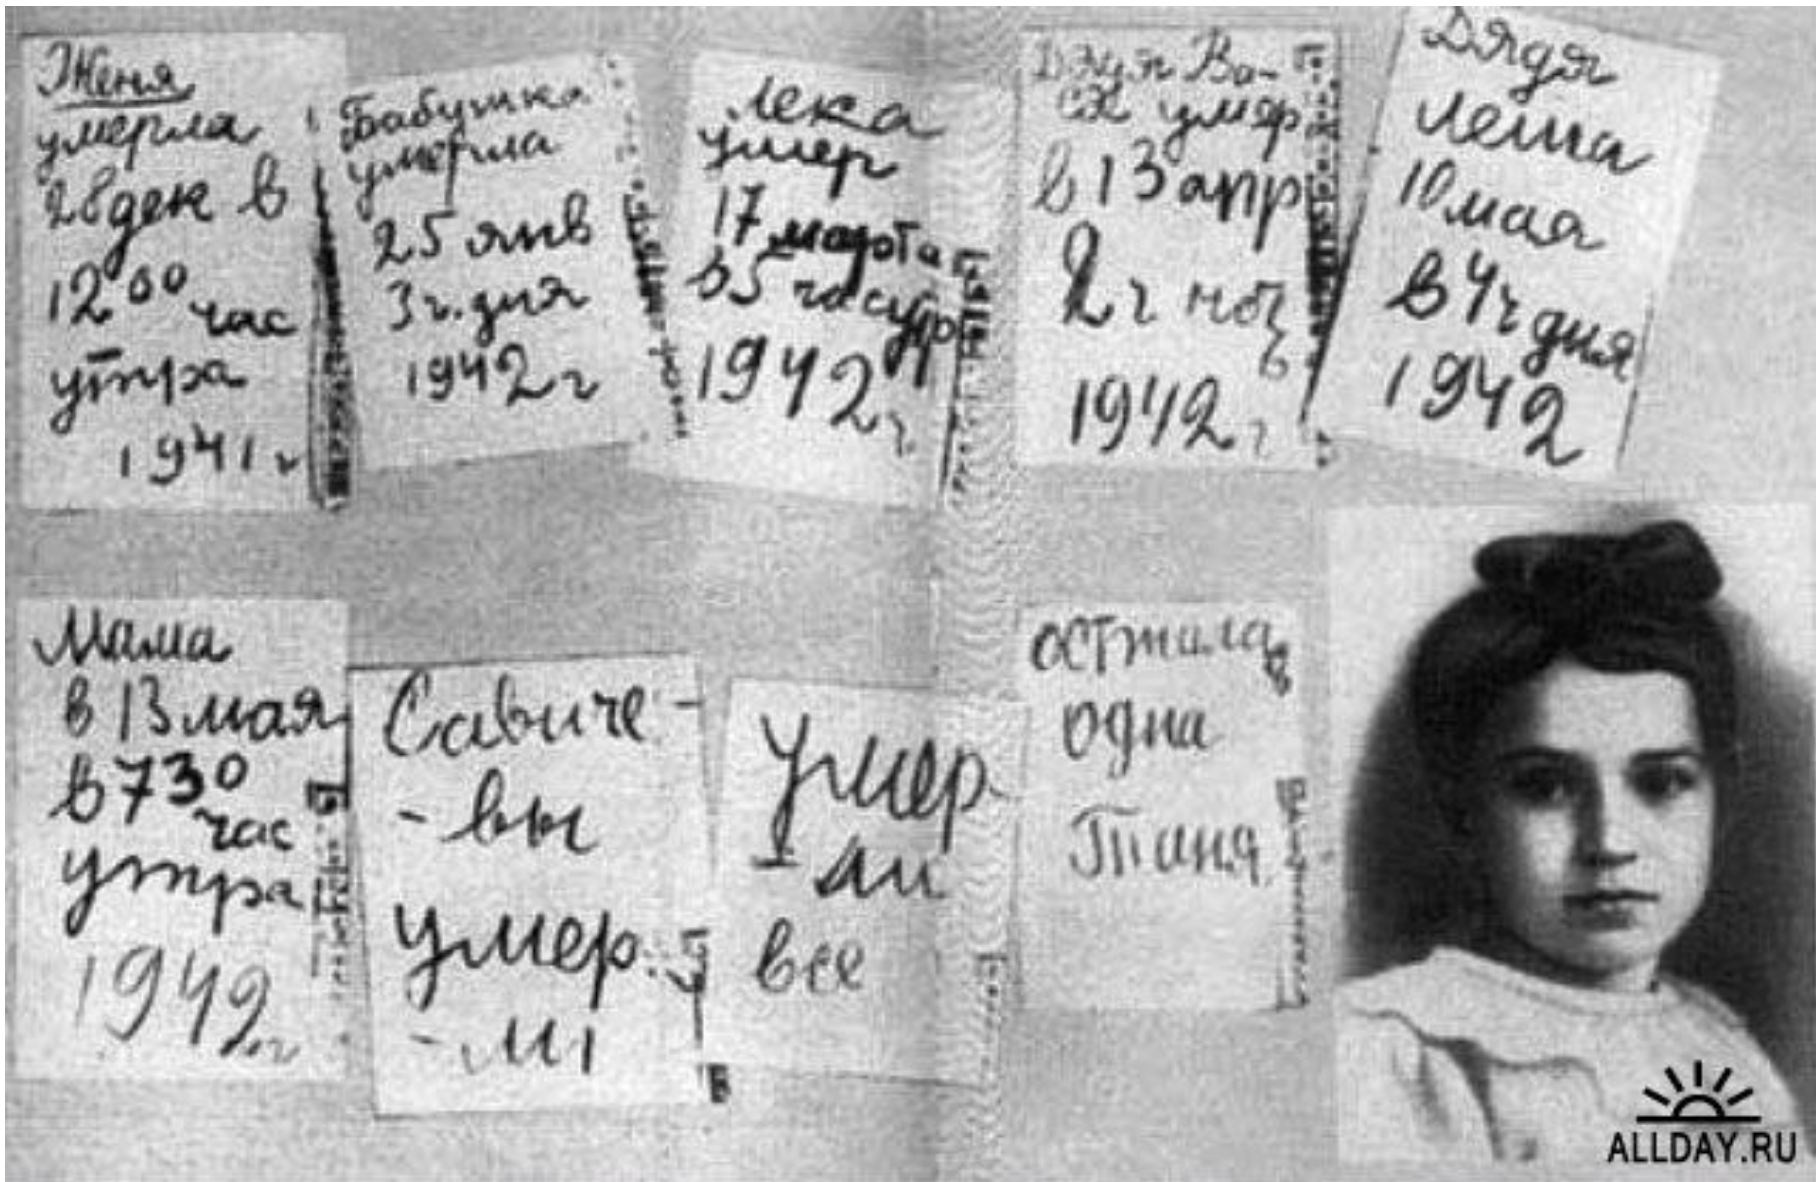 Женя
умерла
28 дек в
12 00 час
утра
1941 г
Бабушка
умерла
25 янв
3 ч. дня
1942 г
Лека
умер
17 марта
в 5 час утр
1942 г
Дядя Ва-
ся умер
в 13 апр
2 ч ночь
1942 г
Дядя
Леша
10 мая
в 4 ч дня
1942
Мама
в 13 мая
в 7 30
час
утра
1942 г
Савиче-
-вы
умер
-ли
Умер
-ли
все
Осталась
одна
Таня
ALLDAY.RU